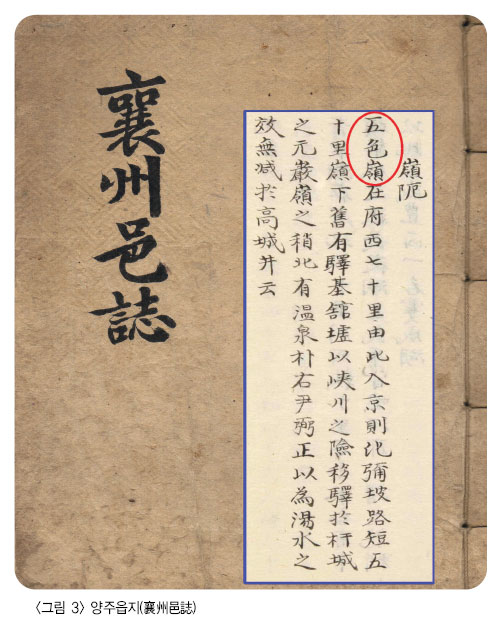 襄州邑誌
嶺阨
五色嶺在府西七十里由此入京則比彌坡路短五
十里嶺下舊有驛基舘墟以峽川之險移驛於杆城
之元巖嶺之稍北有温泉朴右尹弼正以為湯水之
效無减於高城井云
〈그림 3〉 양주읍지(襄州邑誌)